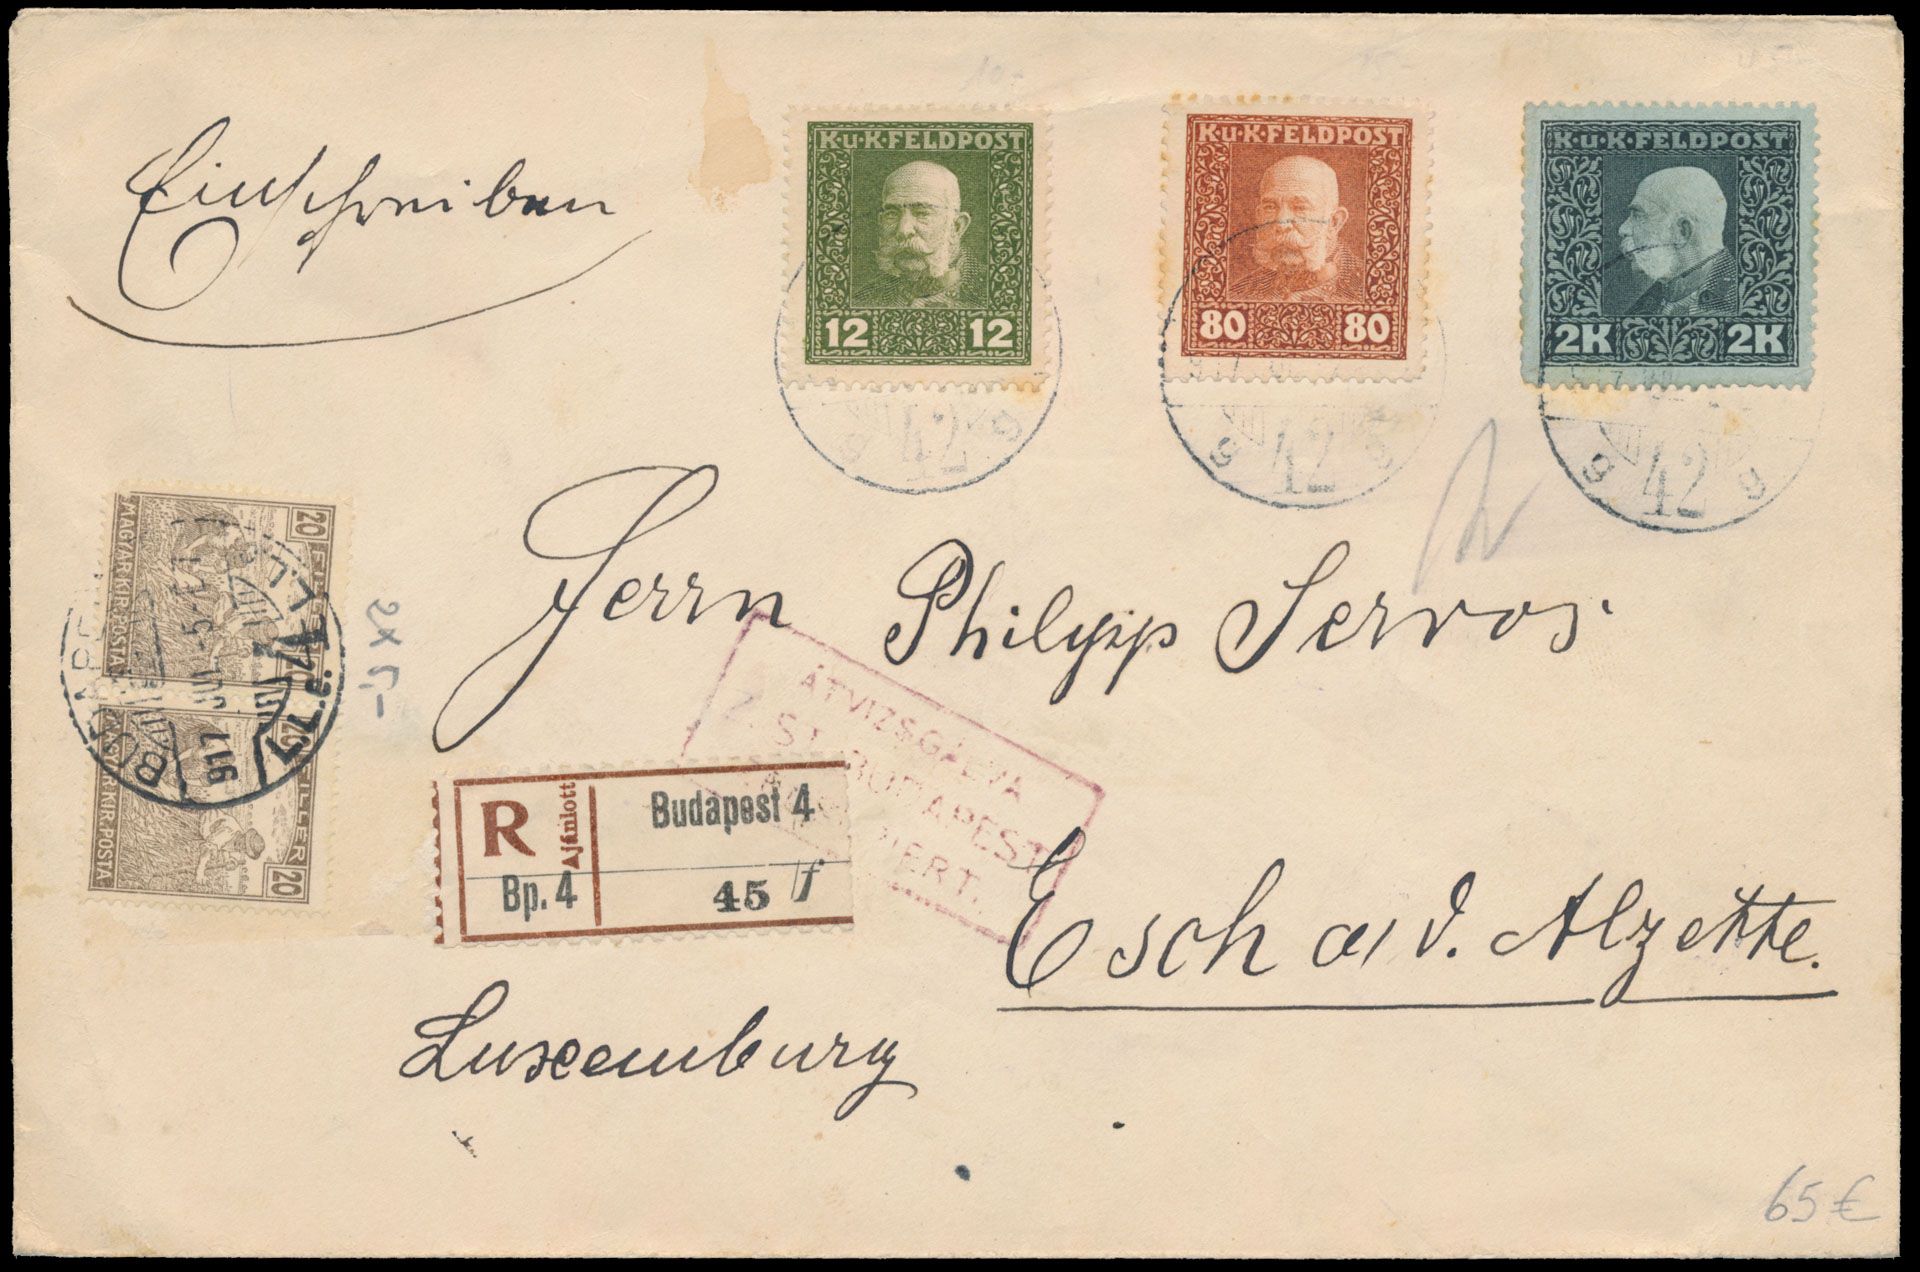 Einschreiben
K.u.K.FELDPOST
12 12
K.u.K.FELDPOST
80 80
K.u.K.FELDPOST
2K 2K
g 42 g
g 42 g
g 42 g
20 FILLÉR 20
MAGYAR KIR. POSTA
20 FILLÉR 20
MAGYAR KIR. POSTA
BUDAPEST
917 JUL. -5.
2x 5,-
Herrn Philipp Servos
ÁTVIZSGÁLVA
BUDAPEST
R Ajánlott Budapest 4
Bp. 4 45 f
Esch a/ d. Alzette.
Luxemburg
65 €